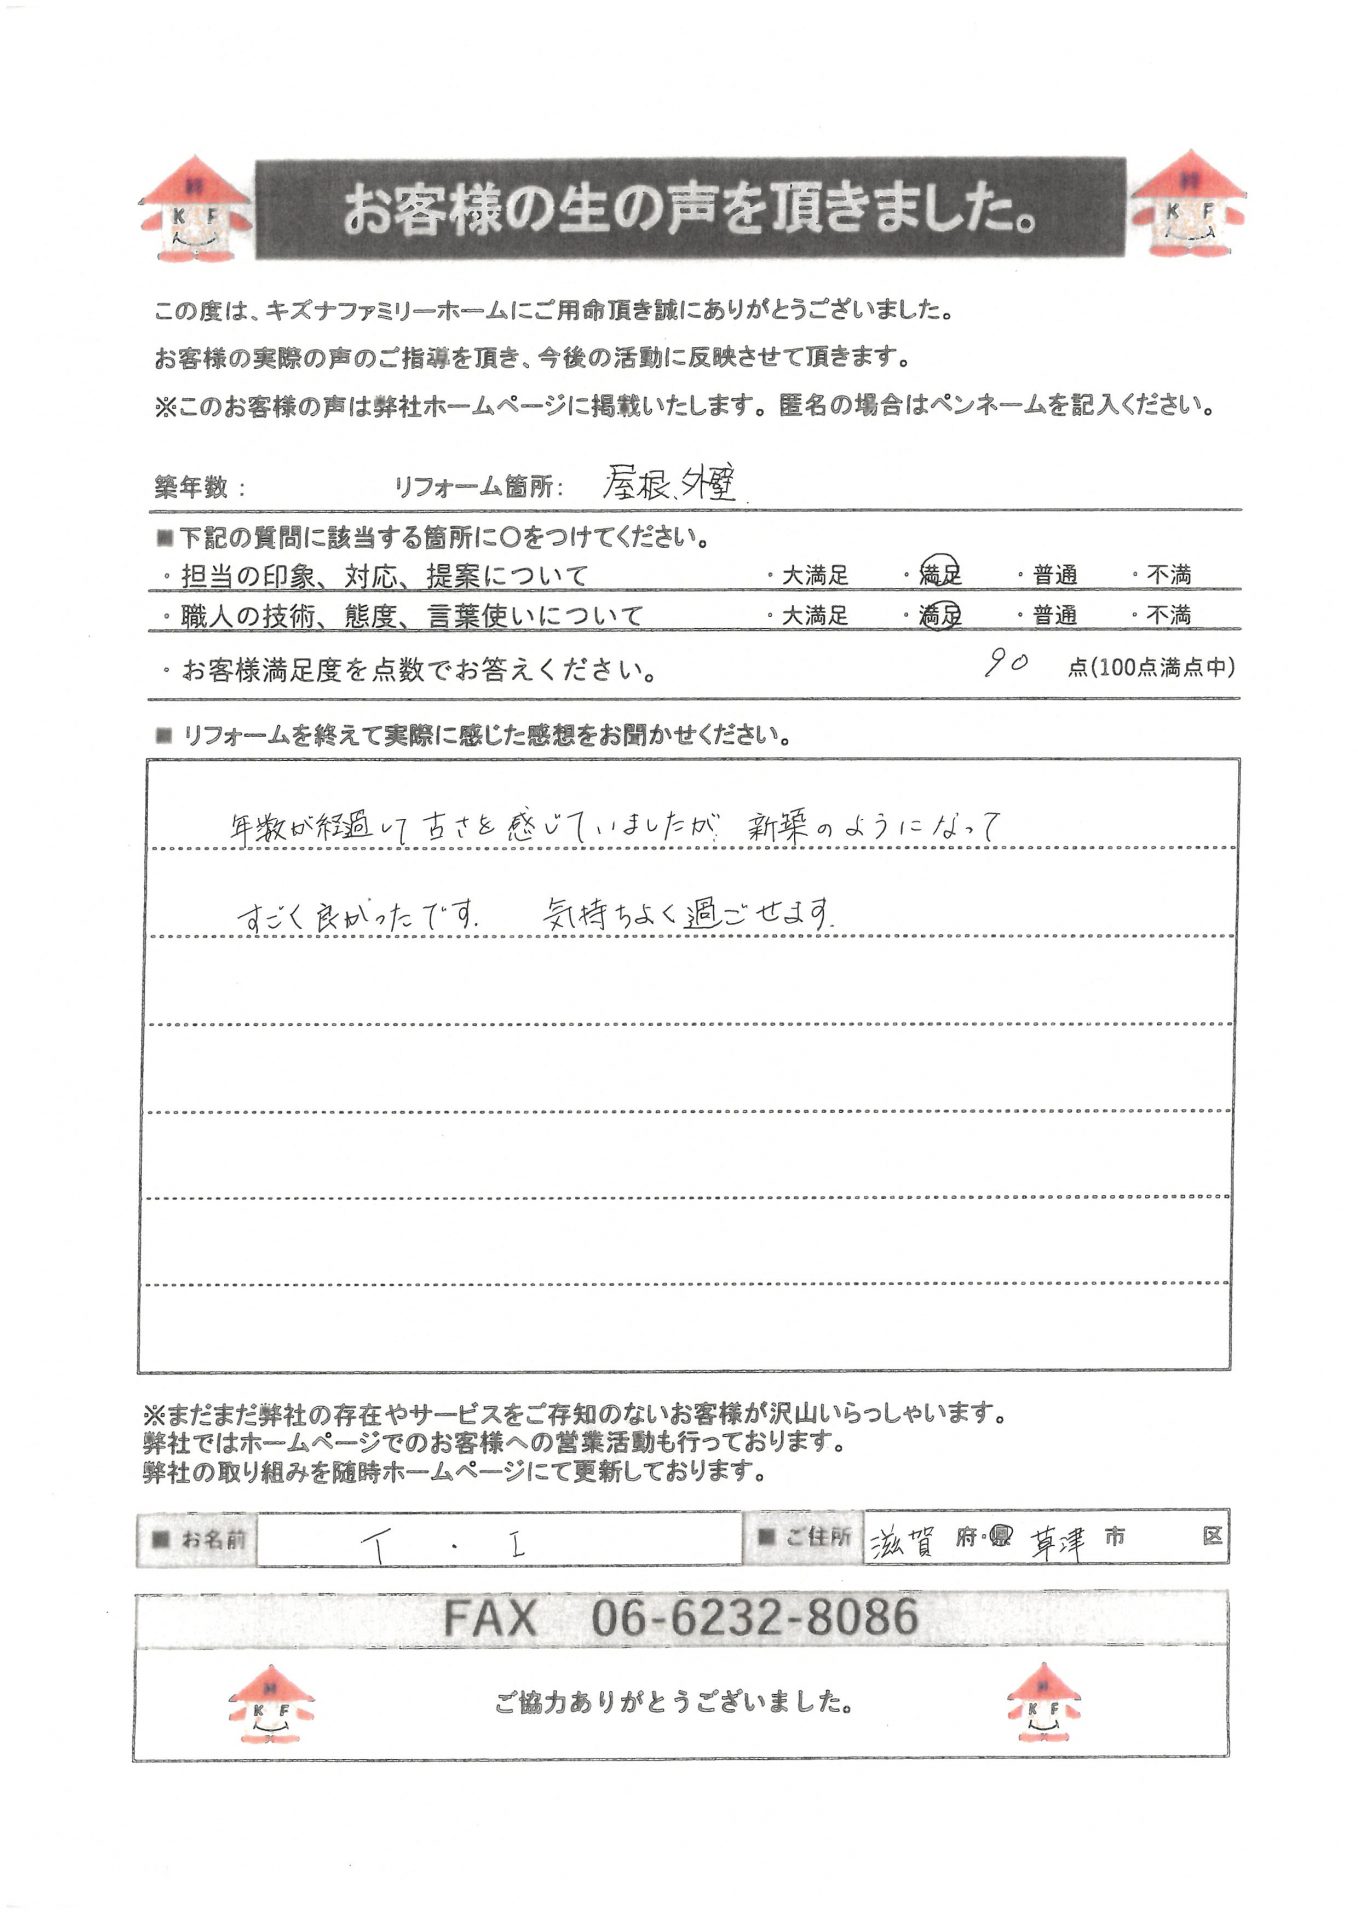 K F
お客様の生の声を頂きました。
K F
この度は、キズナファミリーホームにご用命頂き誠にありがとうございました。
お客様の実際の声のご指導を頂き、今後の活動に反映させて頂きます。
※このお客様の声は弊社ホームページに掲載いたします。匿名の場合はペンネームを記入ください。
築年数: リフォーム箇所: 屋根、外壁
■下記の質問に該当する箇所に〇をつけてください。
・担当の印象、対応、提案について ・大満足 ・満足 ・普通 ・不満
・職人の技術、態度、言葉使いについて ・大満足 ・満足 ・普通 ・不満
・お客様満足度を点数でお答えください。 90 点(100点満点中)
■ リフォームを終えて実際に感じた感想をお聞かせください。
年数が経過して古さを感じていましたが、新築のようになって
すごく良かったです. 気持ちよく過ごせます.
※まだまだ弊社の存在やサービスをご存知のないお客様が沢山いらっしゃいます。
弊社ではホームページでのお客様への営業活動も行っております。
弊社の取り組みを随時ホームページにて更新しております。
■ お名前 T . I ■ ご住所 滋賀 府・県 草津 市 区
FAX 06-6232-8086
K F ご協力ありがとうございました。 K F